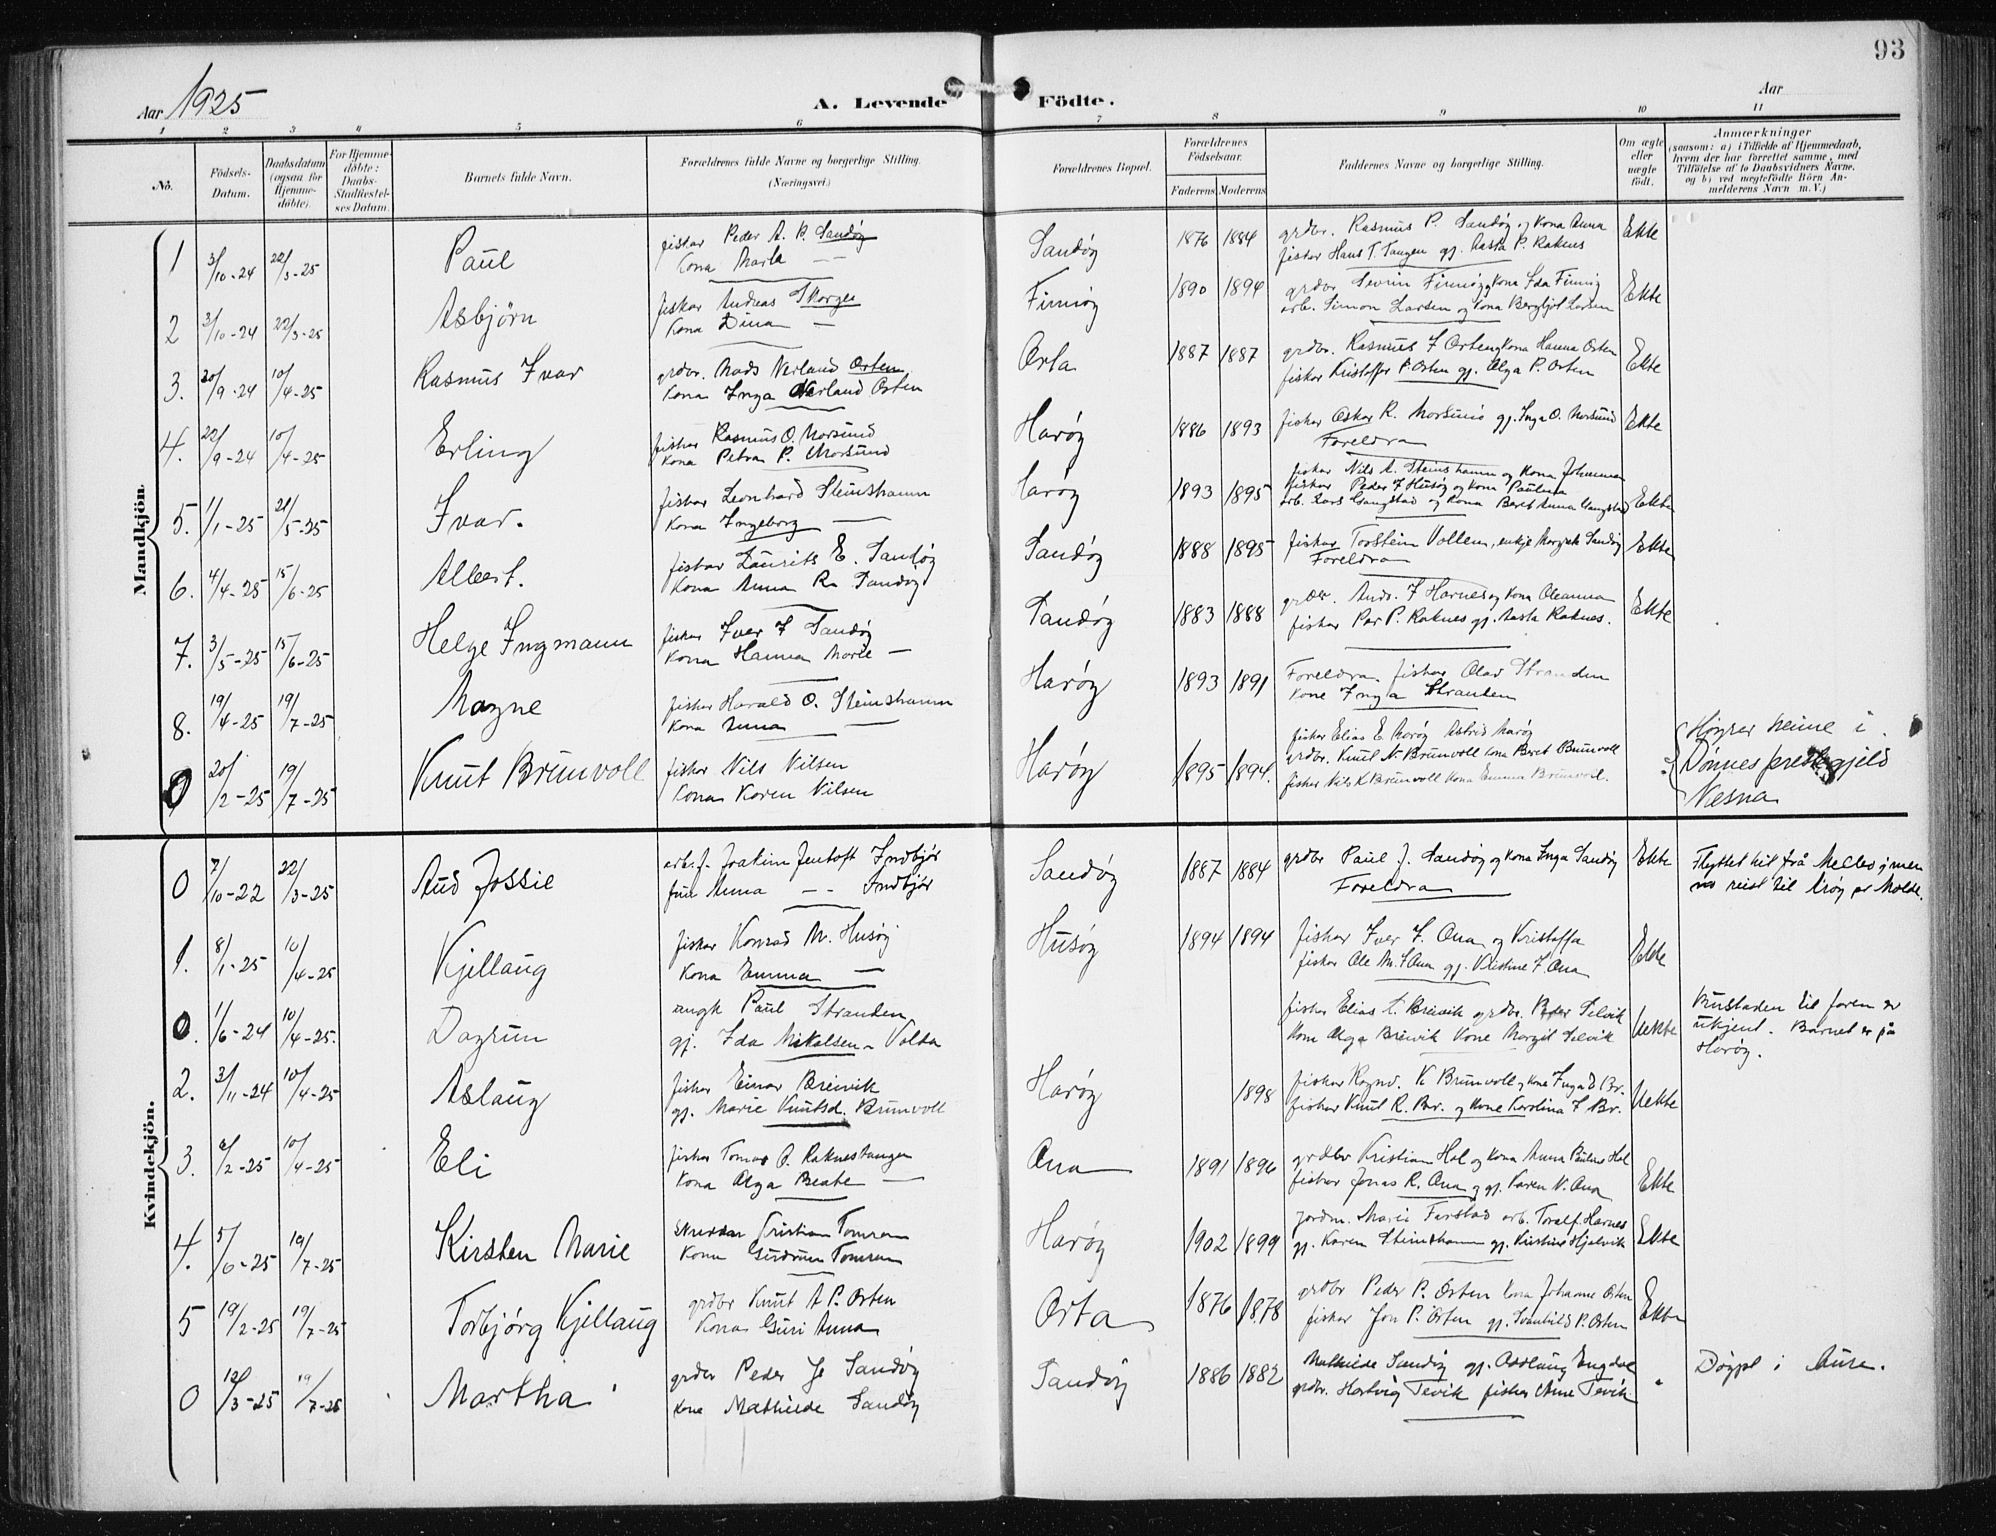 93
Aar 1925
A. Levende Födte.
Aar
1 2 3 4 5 6 7 8 9 10 11
No.
Födsels-Datum.
Daabsdatum (ogsaa for Hjemme-döbte).
For Hjemme-döbte: Daabs-Stadfæstel-ses Datum.
Barnets fulde Navn.
Forældrenes fulde Navne og borgerlige Stilling. (Næringsvei.)
Forældrenes Bopæl.
Forældrenes Födselsaar.
Faderens Moderens
Faddernes Navne og borgerlige Stilling.
Om ægte eller uægte födt.
Anmærkninger (saasom: a) i Tilfælde af Hjemmedaab, hvem der har forrettet samme, med Tilföielse af to Daabsvidners Navne, og b) ved uægtefödte Börn An-melderens Navn m. V.)
Mandkjön
1 3/10-24 22/3-25 Paul fisker Peder A. P. Sandøy 1876 1884 grdbr. Rasmus P. Sandøy og kona Anna Ekte
Kona Marta — Sandøy fisker Hans T. Tangen gj. Aasta P. Raknes
2 3/10-24 22/3-25 Asbjörn fisker Andreas Skorgen Finnøy 1890 1894 grdbr Severin Finnøy og kona Ida Finnøy Ekte
Kona Dina — arb. Simon Larsen og kona Bergljot Larsen
3. 20/9-24 10/4-25 Rasmus Ivar grdbr. Mads Nerland Orten Orta 1887 1887 grdbr. Rasmus I Orten og kona Hanna Orten Ekte
Kona Inga Nerland Orten fisker Kristoffer P. Orten gj. Olga P. Orten
4. 22/9-24 10/4-25 Erling fisker Rasmus O. Morsund Harøy 1886 1893 fisker Oskar R. Morsund gj. Inga O. Morsund Ekte
Kona Petra P. Morsund Foreldra
5. 1/1-25 21/5-25 Ivar. fisker Leonhard Steinshamn Harøy 1893 1895 fisker Nils A. Steinshamn og kona Johanna
Kona Ingeborg — fisker Peder I Husøy og kona Paulina
arb. Lars Gangstad og kona Beret Anna Gangstad Ekte
6. 4/4-25 15/6-25 Albert. fisker Laurits E. Sandøy Sandøy 1888 1895 fisker Torstein Vollen, enkje Margrete Sandøy Ekte
Kona Anna R. Sandøy Foreldra
7. 3/5-25 15/6-25 Helge Ingmann fisker Iver I Sandøy Sandøy 1883 1888 grdbr. Andr. I Harnes og kona Oleanna Ekte
Kona Hanna Marie — fisker Per P. Raknes gj. Aasta Raknes.
8. 19/4-25 19/7-25 Magne fisker Harald O. Steinshamn Harøy 1893 1891 Foreldra fisker Olav Stranden
Kona Anna — Kone Inga Stranden
0 20/2-25 19/7-25 Knut Brunvoll fisker Nils Nilsen Harøy 1895 1894. fisker Elias E Harøy Astrid Harøy
Kona Karen Nilsen grdbr. Knut N. Brunvoll kona Beret Brunvoll
fisker Nils K Brunvoll kona Emma Brunvoll.
Høyrer heime i Dønnes prestegjeld Nesna
Kvindekjön.
0 7/10-22 22/3-25 Aud Jossie arb.f. Joakim Jentoft Indbjör Sandøy 1887 1884 grdbr Paul J. Sandøy og kona Inga Sandøy Ekte
frue Anna — — Indbjör Foreldra
Flyttet hit frå men no reist til Årøy pr Molde.
1. 8/1-25 10/4-25 Kjellaug fisker Konrad M. Husøy Husøy 1894 1894 fisker Iver I. Ona og Kristoffa Ekte
Kona Emma — fisker Ole M. I Ona gj. Kristine I. Ona
0. 1/6-24 10/4-25. Dagrun ungk Paul Stranden fisker Elias L Breivik grdbr. Peder Selvik Uekte
gj. Ida Mikalsen - Volda Kona Olga Breivik Kone Margit Selvik
Bustaden til faren er ukjent. Barnet er på Harøy.
2. 3/11-24 10/4-25 Aslaug fisker Einar Breivik Harøy 1898 fisker Ragnv. K Brunvoll og kone Inga D Br. Uekte
gj. Marie Knutsd. Brunvoll fisker Knut R. Br. og kone Karolina I Br.
3. 6/2-25 10/4-25 Eli fisker Tomas P. Raknestangen Ona 1891 1896 grdbr Kristian Hol og kona Anna Pauline Hol Ekte
Kona Olga Beate — fisker Jonas R. Ona og gj. Karen K. Ona
4. 5/6-25 19/7-25 Kirsten Marie Skreddar Kristian Tomren Harøy 1902 1899 jordm. Marie Farstad arb. Toralf Harnes Ekte
Kona Gudrun Tomren gj. Karen Steinshamn gj. Kristine Hjelvik
5 19/2-25 19/7-25 Torbjørg Kjellaug grdbr Knut A P. Orten Orta 1876 1878 grdbr Peder P. Orten kona Johanne Orten Ekte
Kona Guri Anna fisker Jon P. Orten gj. Svanhild P. Orten
0 12/3-25 19/7-25 Martha grdbr Peder Sandøy Sandøy 1886 1882 Mathilde Sandøy gj. Aslaug Engdal "
Kone Mathilde Sandøy grdbr. Hartvig Tevik fisker Arne Tevik
Døypt i Aure.